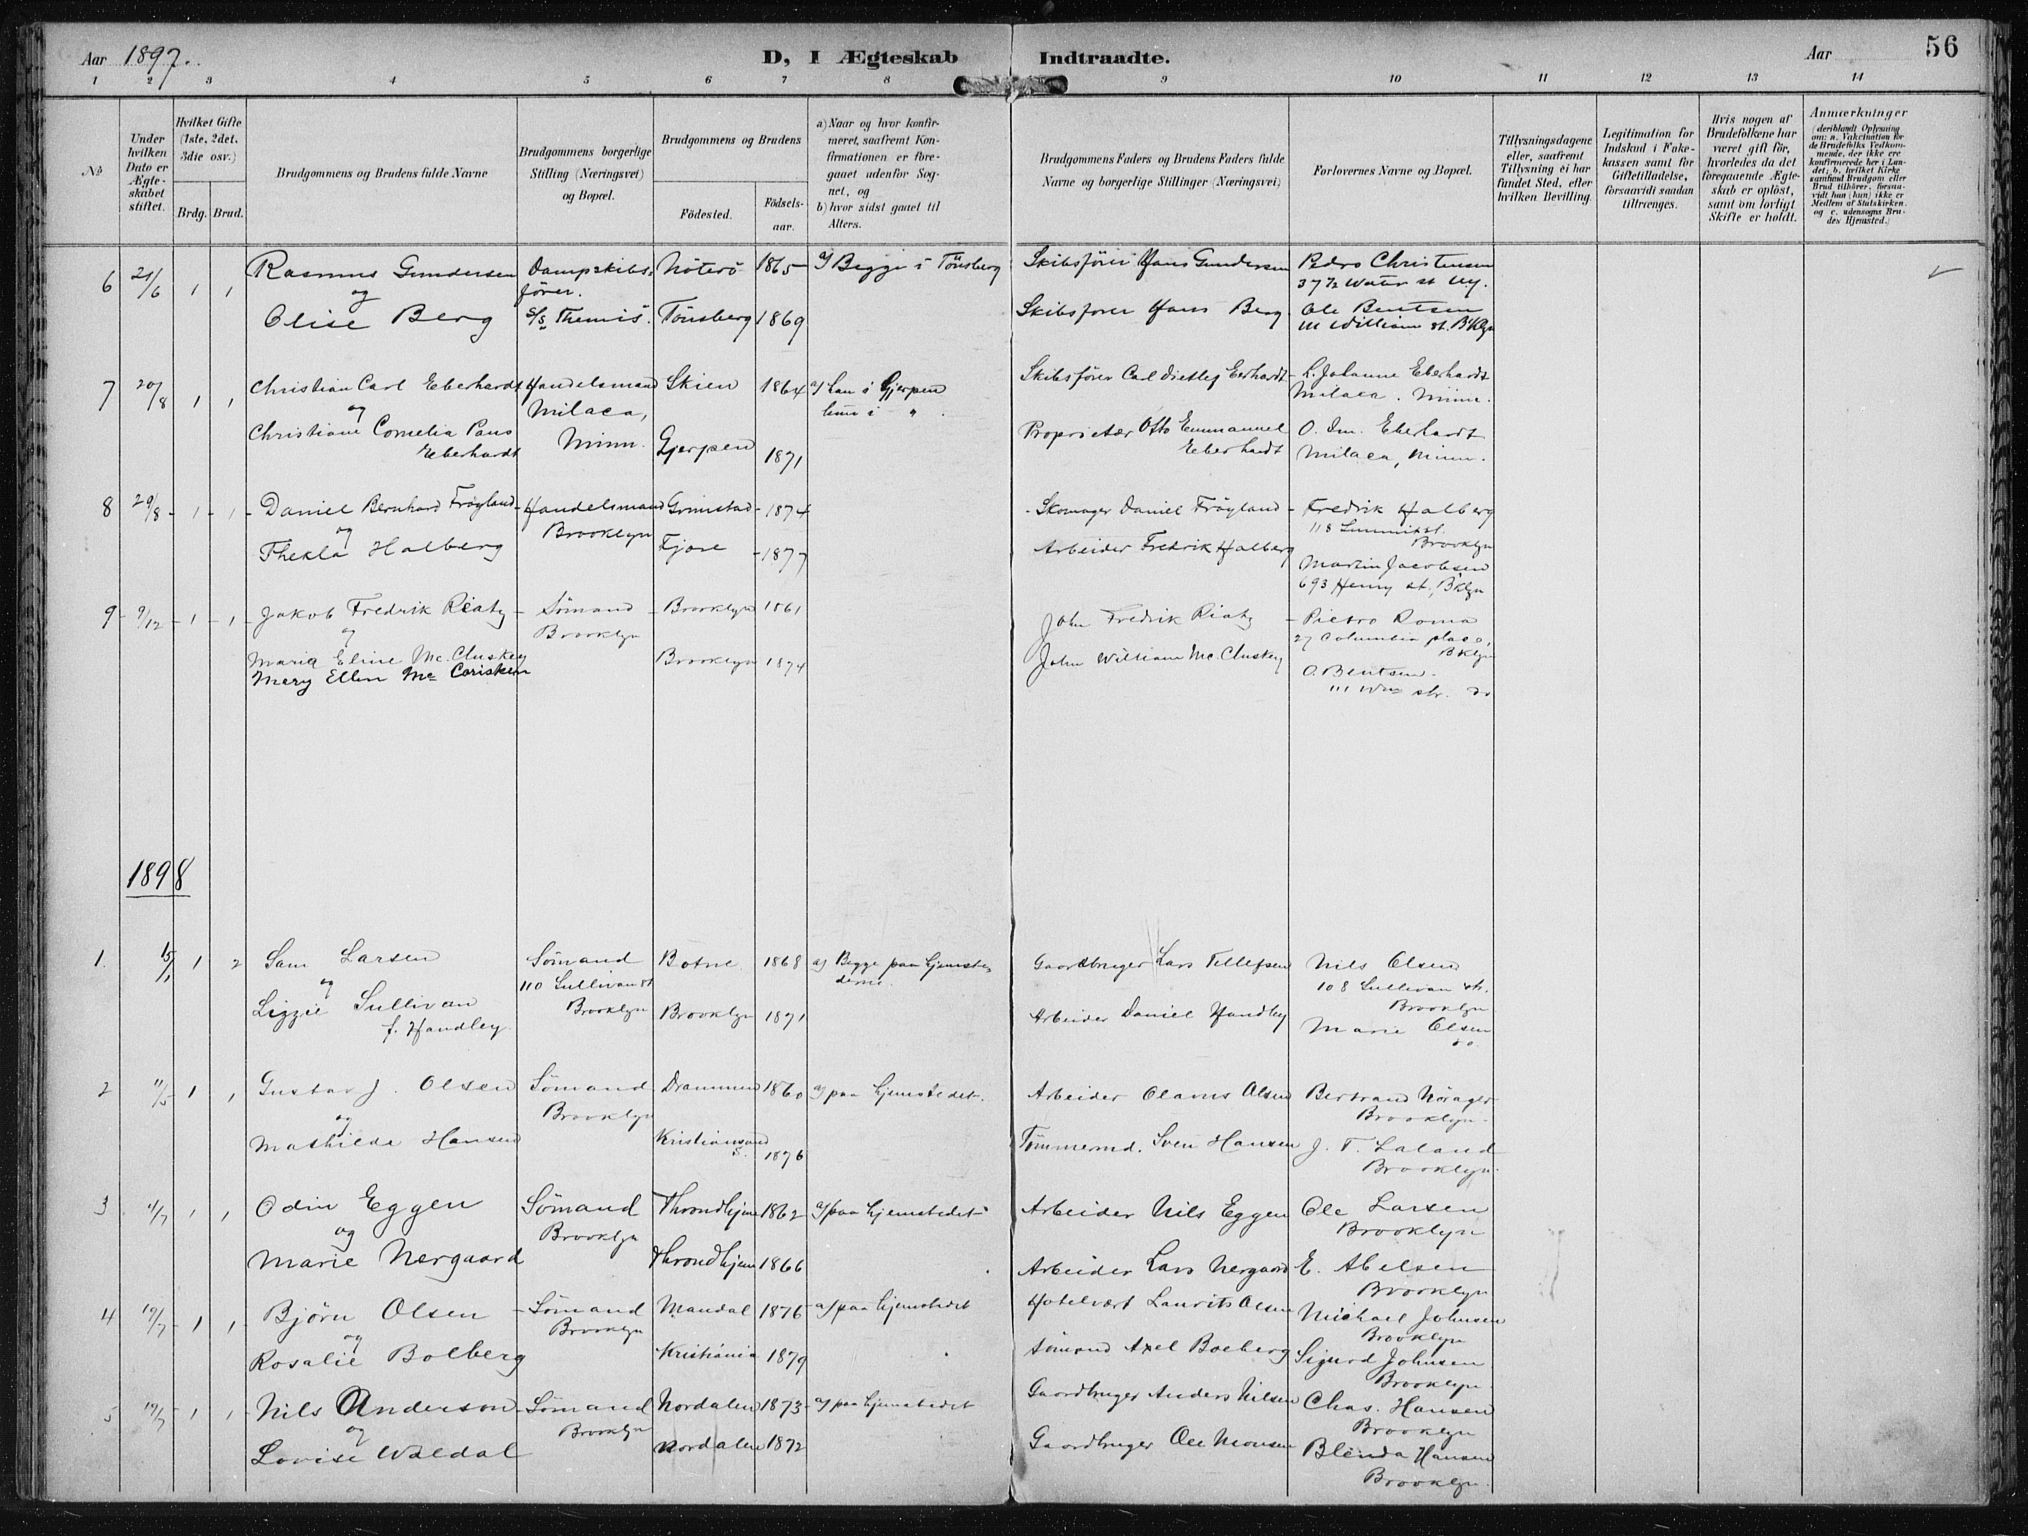 Aar 1897. D, I Ægteskab Indtraadte. Aar 56
1 2 3 4 5 6 7 8 9 10 11 12 13 14
№
Under hvilken Dato er Ægteskabet stiftet.
Hvilket Gifte (1ste, 2det, 3die osv.)
Brdg. Brud.
Brudgommens og Brudens fulde Navne
Brudgommens borgerlige Stilling (Næringsvei) og Bopæl.
Brudgommens og Brudens
Födested. Födselsaar.
a) Naar og hvor konfirmeret, saafremt Konfirmationen er foregaaet udenfor Sognet, og
b) hvor sidst gaaet til Alters.
Brudgommens Faders og Brudens Faders fulde Navne og borgerlige Stillinger (Næringsvei)
Forlovernes Navne og Bopæl.
Tillysningsdagene eller, saafremt Tillysning ei har fundet Sted, efter hvilken Bevilling.
Legitimation for Indskud i Enkekassen samt for Giftetilladelse, forsaavidt saadan tiltrænges.
Hvis nogen af Brudefolkene har været gift för, hvorledes da det foregaaende Ægteskab er oplöst, samt om lovligt Skifte er holdt.
Anmærkninger (deriblandt Oplysning om: a. Vakcination for de Brudefolks Vedkommende, der ikke ere konfirmerede her i Landet; b. hvilket Kirkesamfund Brudgom eller Brud tilhörer, forsaavidt han (hun) ikke er Medlem af Statskirken, og c. udensogns Brudes Hjemsted.)
6 21/6 1 1 Rasmus Gundersen Dampskibs- Nöterö 1865 a/ Begge i Tönsberg Skibsförer Hans Gundersen Pedro Christensen
og förer. 37½ Water st Ny.
Olise Berg S/S Themis. Tönsberg 1869 Skibsförer Hans Berg Ole Bentsen
111 William st. Bklyn
7 20/8 1 1 Christian Carl Eberhardt Handelsmand Skien 1864 a/ han i Gjerpen Skibsfører Carl Dietlef Eberhardt L. Johanne Eberhardt
og Milaca, hun i " Milaca. Minn.
Christiane Cornelia Paus Minn. Gjerpen 1871 Proprietær Otto Emmanuel O. Em. Eberhardt
Eberhardt Eberhardt Milaca, Minn.
8 29/8 1 1 Daniel Bernhard Frøyland Handelsmand Grimstad 1874 Skomager Daniel Frøyland Fredrik Halberg
og Brooklyn 118 Summit st. Brooklyn
Thekla Halberg Fjore 1877 Arbeider Fredrik Halberg Martin Jacobsen
693 Henry st., Bklyn
9 9/12 1 1 Jakob Fredrik Riaty Sømand Brooklyn 1861 John Fredrik Riaty Pietro Roma
og Brooklyn 27 Columbia place, Bklyn
Maria Eline Mc. Cluskey Brooklyn 1874 John William Mc. Cluskey O. Bentsen.
Mery Ellen Mc Corisken 111 Wm str. do
1898
1. 15/1 1 2 Sam Larsen Sömand Botne 1868 a) Begge paa hjemste- Gaardbruger Lars Tellefsen Nils Olsen
og 110 Sullivan st derne. 108 Sullivan str.
Lizzie Sullivan Brooklyn Brooklyn 1871 Arbeider Daniel Handley Brooklyn
f. Handley Marie Olsen
do.
2 11/5 1 1 Gustav J. Olsen Sömand Drammen 1860 a/ paa hjemstedet. Arbeider Olaves Olsen Bertrand Nörager
og Brooklyn Brooklyn.
Mathilde Hansen Kristiansand S. 1876 Tömmermd. Sven Hansen J. T. Laland
Brooklyn.
3 11/7 1 1 Odin Eggen Sömand Throndhjem 1862 a/ paa hjemstedet Arbeider Nils Eggen Ole Larsen
og Brooklyn Brooklyn
Marie Nergaard Throndhjem 1866 Arbeider Lars Nergaard E. Abelsen
Brooklyn
4 19/7 1 1 Bjørn Olsen Sömand Mandal 1876 a/ paa hjemstedet Hotelvært Laurits Olsen Michael Johnsen
og Brooklyn Brooklyn
Rosalie Bolberg Kristiania 1879 Sömand Axel Boeberg Sigurd Johnsen
Brooklyn.
5 19/7 1 1 Nils Anderson Sömand Nordalen 1873 a/ paa hjemstedet Gaardbruger Anders Nilsen Chas. Hansen
og Brooklyn Brooklyn
Lovise Waldal Nordalen 1872 Gaardbruger Ole Monsen Blenda Hansen
Brooklyn.